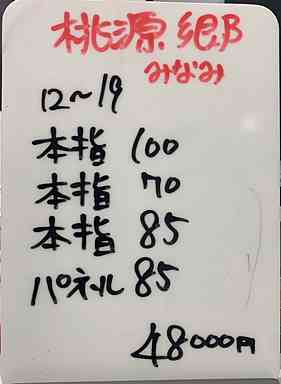 桃源郷
みなみ
12~19
本指 100
本指 70
本指 85
パネル 85
48000円